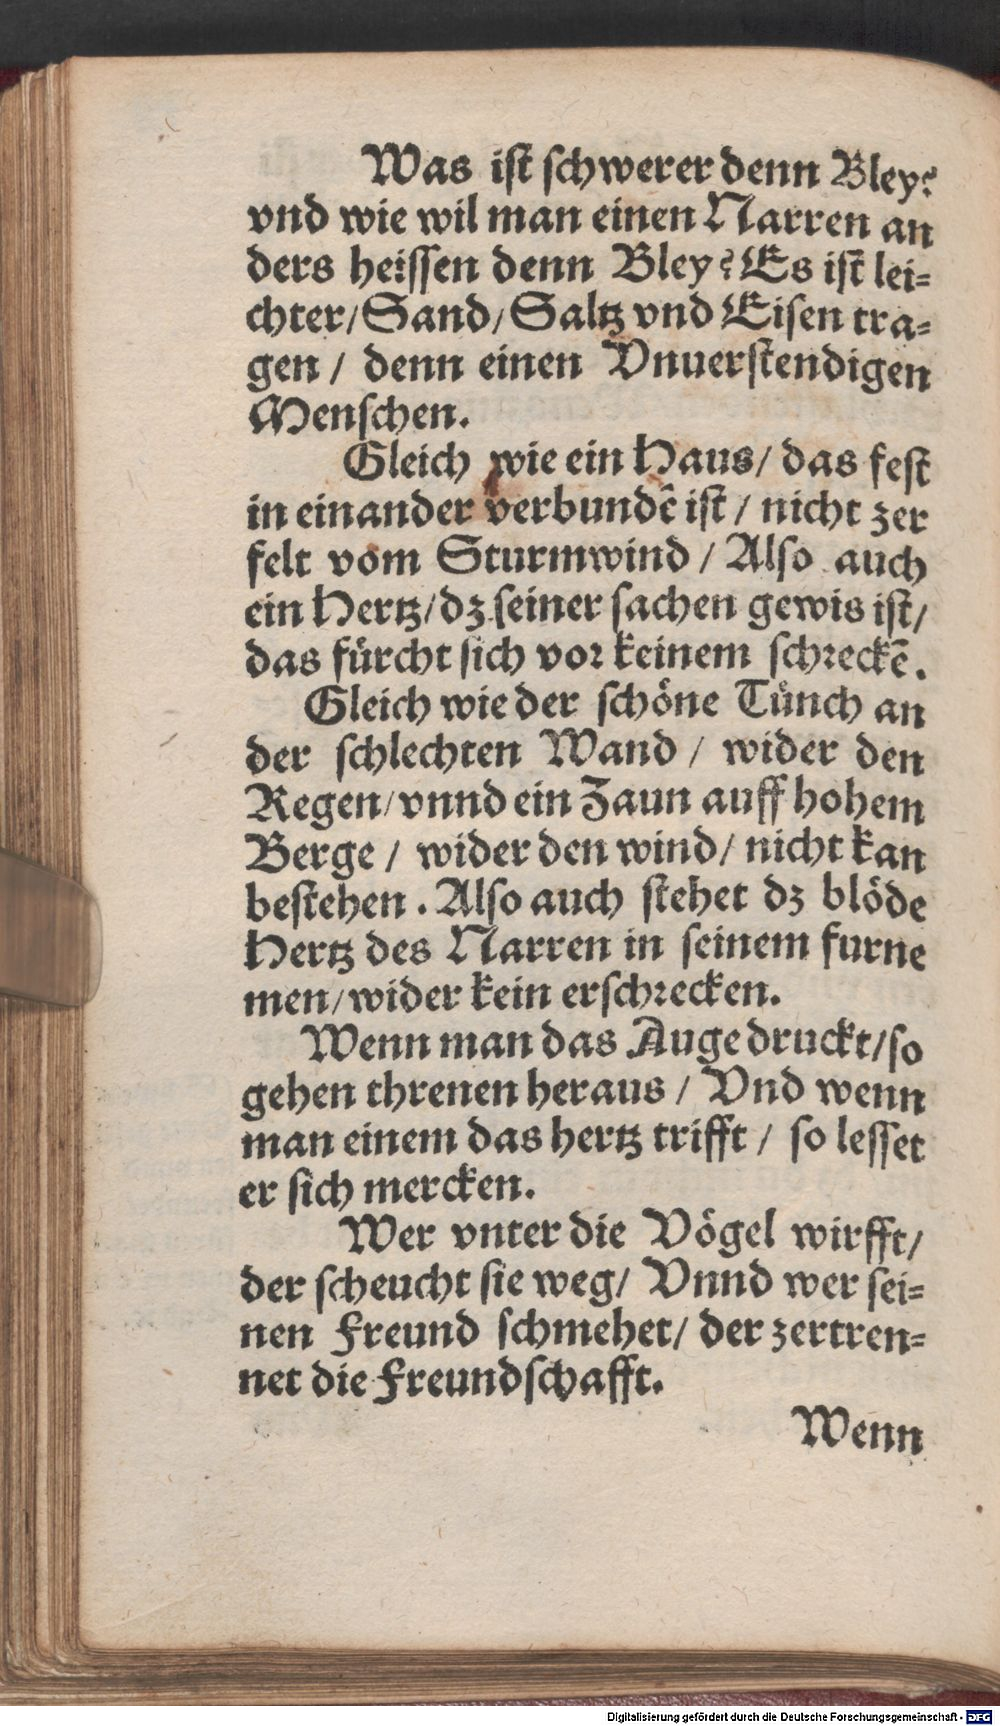 Was ist schwerer denn Bley?
vnd wie wil man einen Narren an
ders heissen denn Bley? Es ist lei=
chter/ Sand/ Saltz vnd Eisen tra=
gen / denn einen Vnuerstendigen
Menschen.
Gleich wie ein Haus/ das fest
in einander verbundẽ ist / nicht zer
felt vom Sturmwind / Also auch
ein Hertz/ dz seiner sachen gewis ist/
das fürcht sich vor keinem schreckẽ.
Gleich wie der schöne Tünch an
der schlechten Wand / wider den
Regen/ vnnd ein Zaun auff hohem
Berge / wider den wind/ nicht kan
bestehen. Also auch stehet dz blöde
Hertz des Narren in seinem furne
men/ wider kein erschrecken.
Wenn man das Auge druckt/ so
gehen threnen heraus / Vnd wenn
man einem das hertz trifft / so lesset
er sich mercken.
Wer vnter die Vögel wirfft/
der scheucht sie weg/ Vnnd wer sei=
nen Freund schmehet/ der zertren=
net die Freundschafft.
Wenn
Digitalisierung gefördert durch die Deutsche Forschungsgemeinschaft - DFG